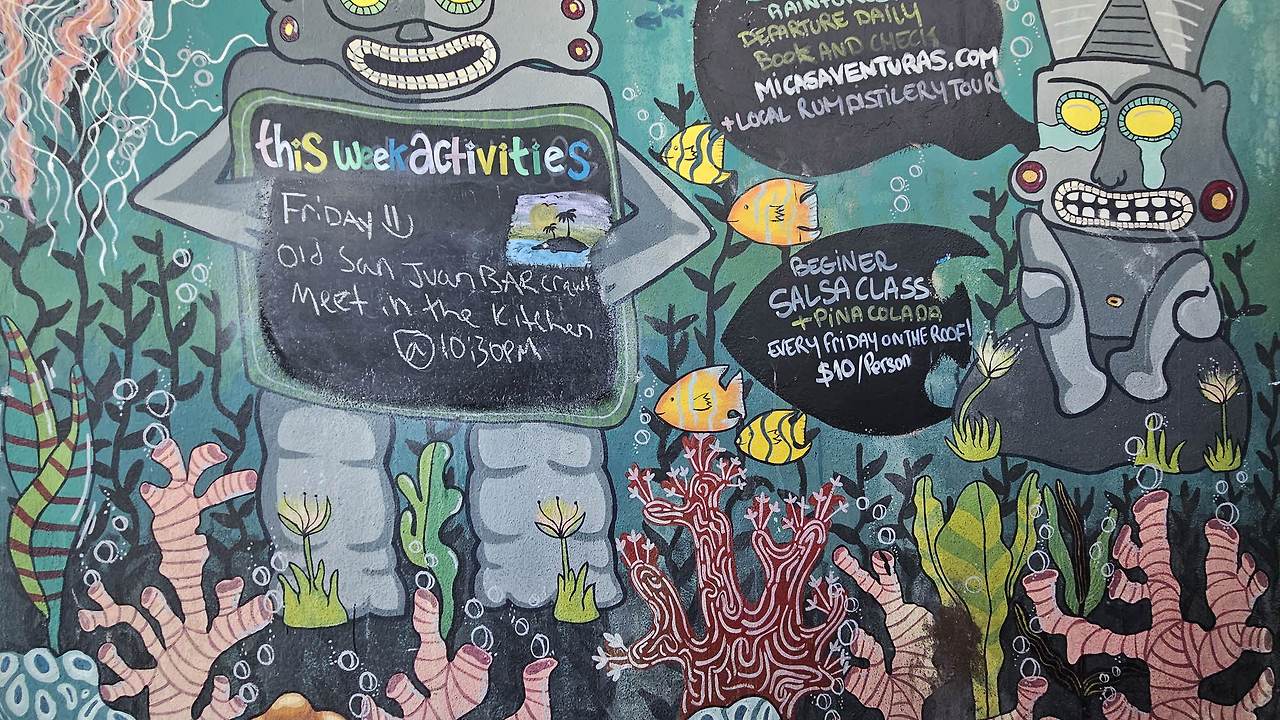 this week activities
FriDAY
Old San Juan BAR crawl
Meet in the Kitchen
@10:30PM
DEPARTURE DAILY
BOOK AND CHECK
MICASAVENTURAS.COM
+LOCAL RUM DISTILERY TOUR!
BEGINER
SALSA CLASS
+PINA COLADA
EVERY FRIDAY ON THE ROOF!
$10/Person